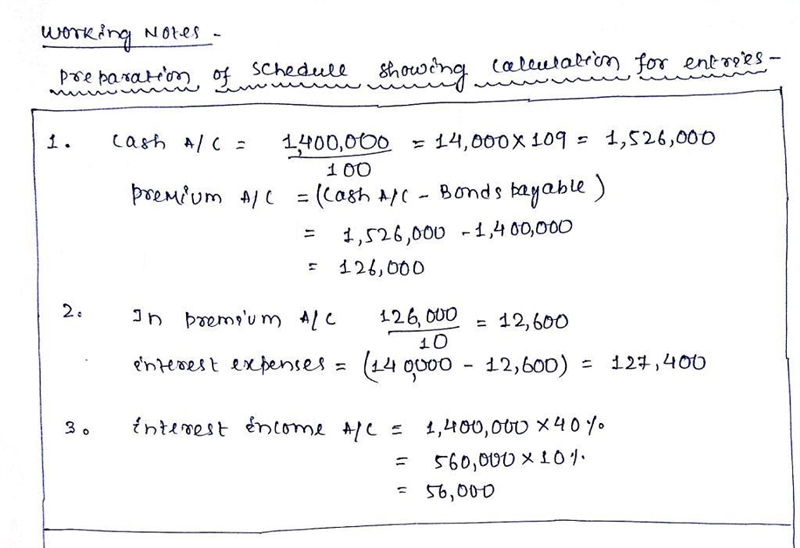 Working Notes -
Preparation of schedule showing calculation for entries -
1. Cash A/C = 1,400,000 / 100 = 14,000 × 109 = 1,526,000
Premium A/C = (Cash A/C - Bonds payable)
= 1,526,000 - 1,400,000
= 126,000
2. In premium A/C 126,000 / 10 = 12,600
interest expenses = (140,000 - 12,600) = 127,400
3. interest income A/C = 1,400,000 × 40%
= 560,000 × 10%
= 56,000